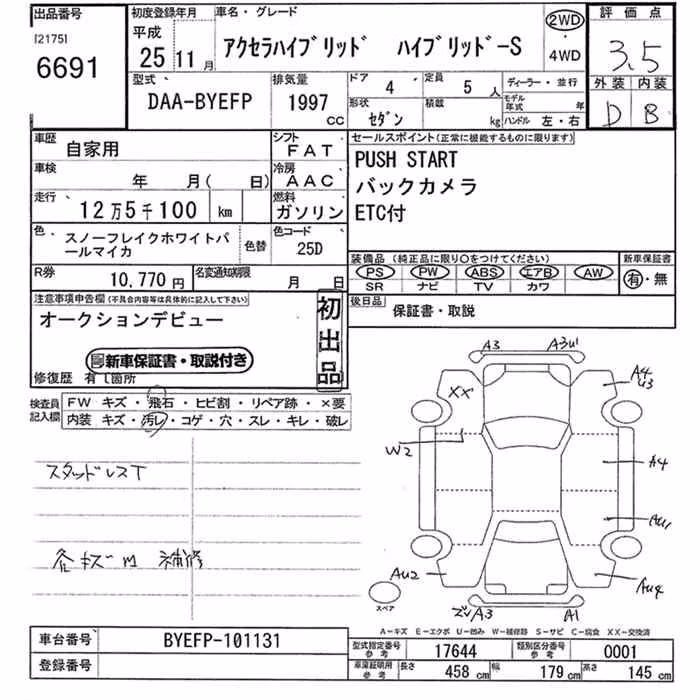 出品番号
[2175]
6691
初度登録年月
平成
25 11 月
車名・グレード
アクセラハイブリッド ハイブリッド-S
2WD
・
4WD
評価点
3.5
外装 内装
D B
型式
DAA-BYEFP
排気量
1997
cc
ドア
4
定員
5 人
形状
セダン
積載
kg
ディーラー・並行
モデル年式 年
ハンドル 左・右
車歴
自家用
シフト
FAT
車検
年 月( 日)
冷房
AAC
走行
12万5千100 km
燃料
ガソリン
色
スノーフレイクホワイトパ
ールマイカ
色替
色コード
25D
R券
10,770 円
名変通知期限
月 日
セールスポイント(正常に機能するものに限ります)
PUSH START
バックカメラ
ETC付
装備品(純正品に限り○をつけてください)
PS PW ABS エアB AW
SR ナビ TV カワ
新車保証書
有・無
後日品
保証書・取説
注意事項申告欄(不具合内容等は具体的に記入して下さい)
オークションデビュー
新車保証書・取説付き
初出品
修復歴 有 [箇所
検査員
記入欄
FW キズ・飛石・ヒビ割・リペア跡・×要
内装 キズ・汚レ・コゲ・穴・スレ・キレ・破レ
スタッドレスT
各キズ凹 補修
A3
A3U1
A4
U3
XX
W2
A4
AU1
AU2
AU4
ズレA3
A1
スペア
A-キズ E-エクボ U-凹み W-補修跡 S-サビ C-腐食 XX-交換済
車台番号
BYEFP-101131
登録番号
型式指定番号
参考
17644
類別区分番号
参考
0001
車庫証明用
参考
長さ
458 cm
幅
179 cm
高さ
145 cm